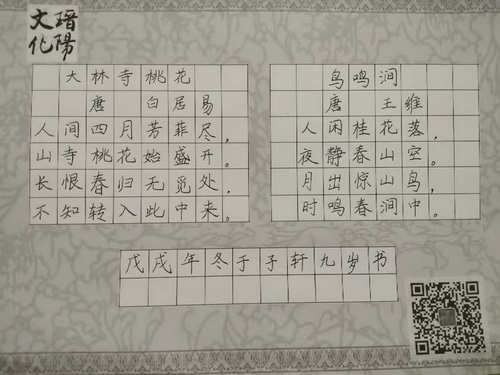 陽
文化
大林寺桃花
唐 白居易
人间四月芳菲尽，
山寺桃花始盛开。
长恨春归无觅处，
不知转入此中来。
鸟鸣涧
唐 王维
人闲桂花落，
夜静春山空。
月出惊山鸟，
时鸣春涧中。
戊戌年冬于子轩九岁书